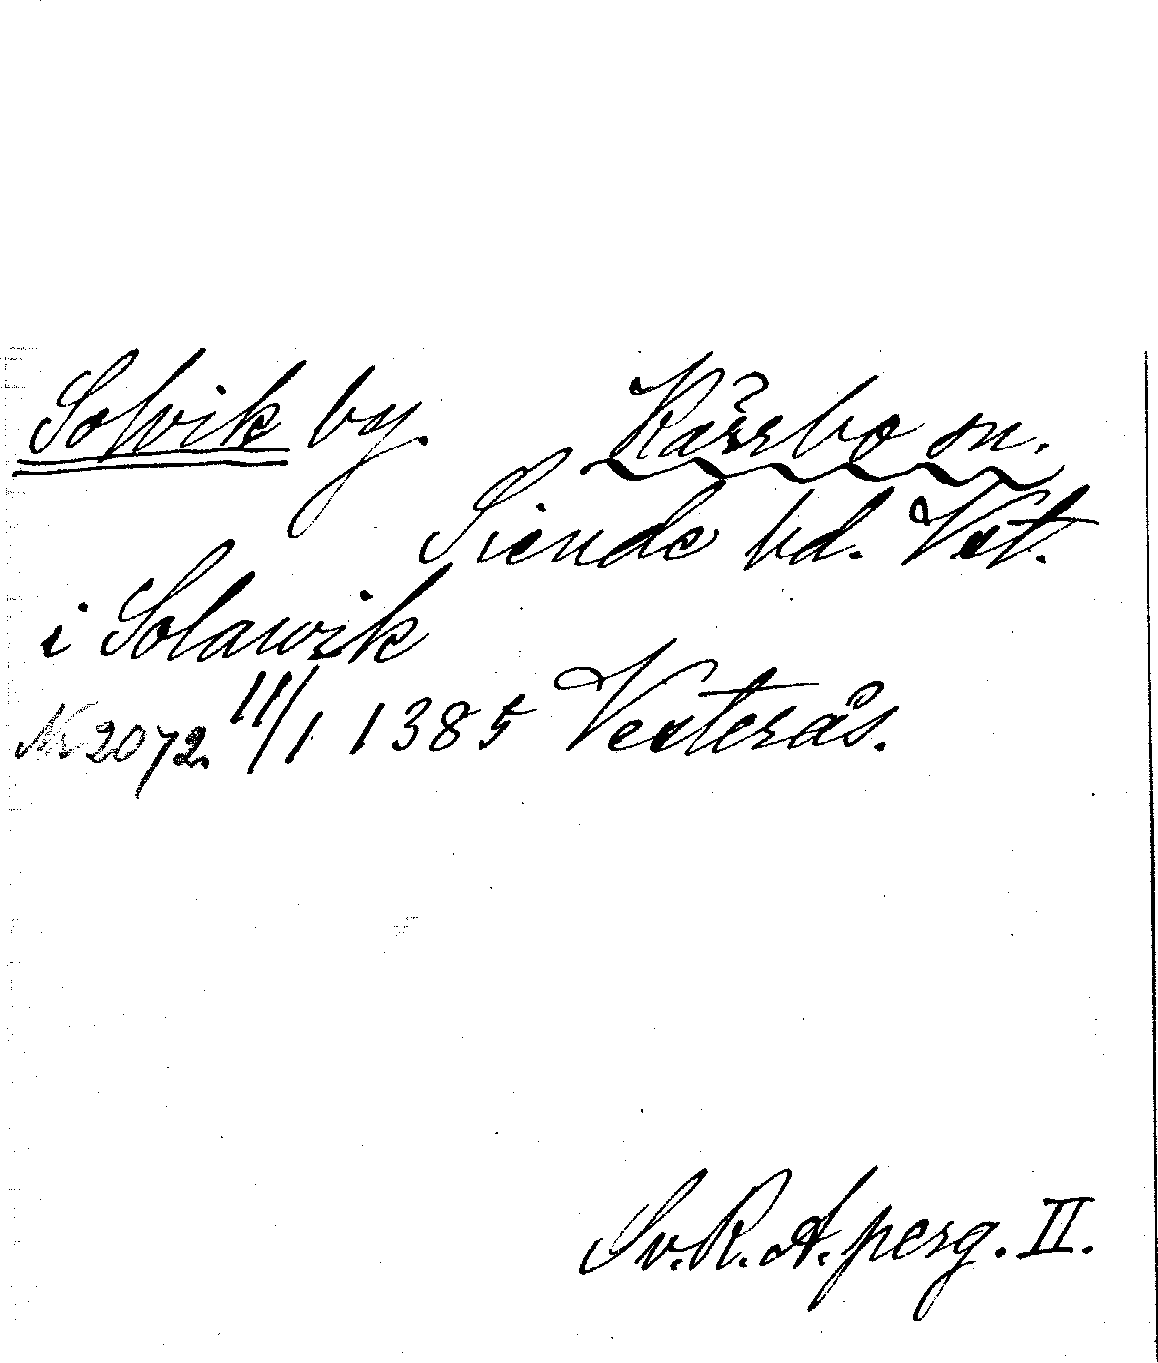 Solvik by. Kärrbo sn.
Siende hd. Vst.
i Solawik
Nr 2072. 11/1 1385 Vesterås.
Sv. R. A. perg. II.